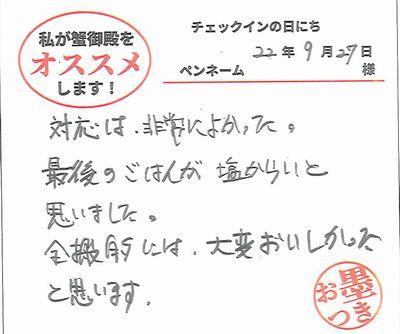 私が蟹御殿を
オススメ
します!
チェックインの日にち
22年9月27日
ペンネーム 様
対応は、非常によかった。
最後のごはんが塩からいと
思いました。
全搬的には、大変おいしかった
と思います.
お墨つき